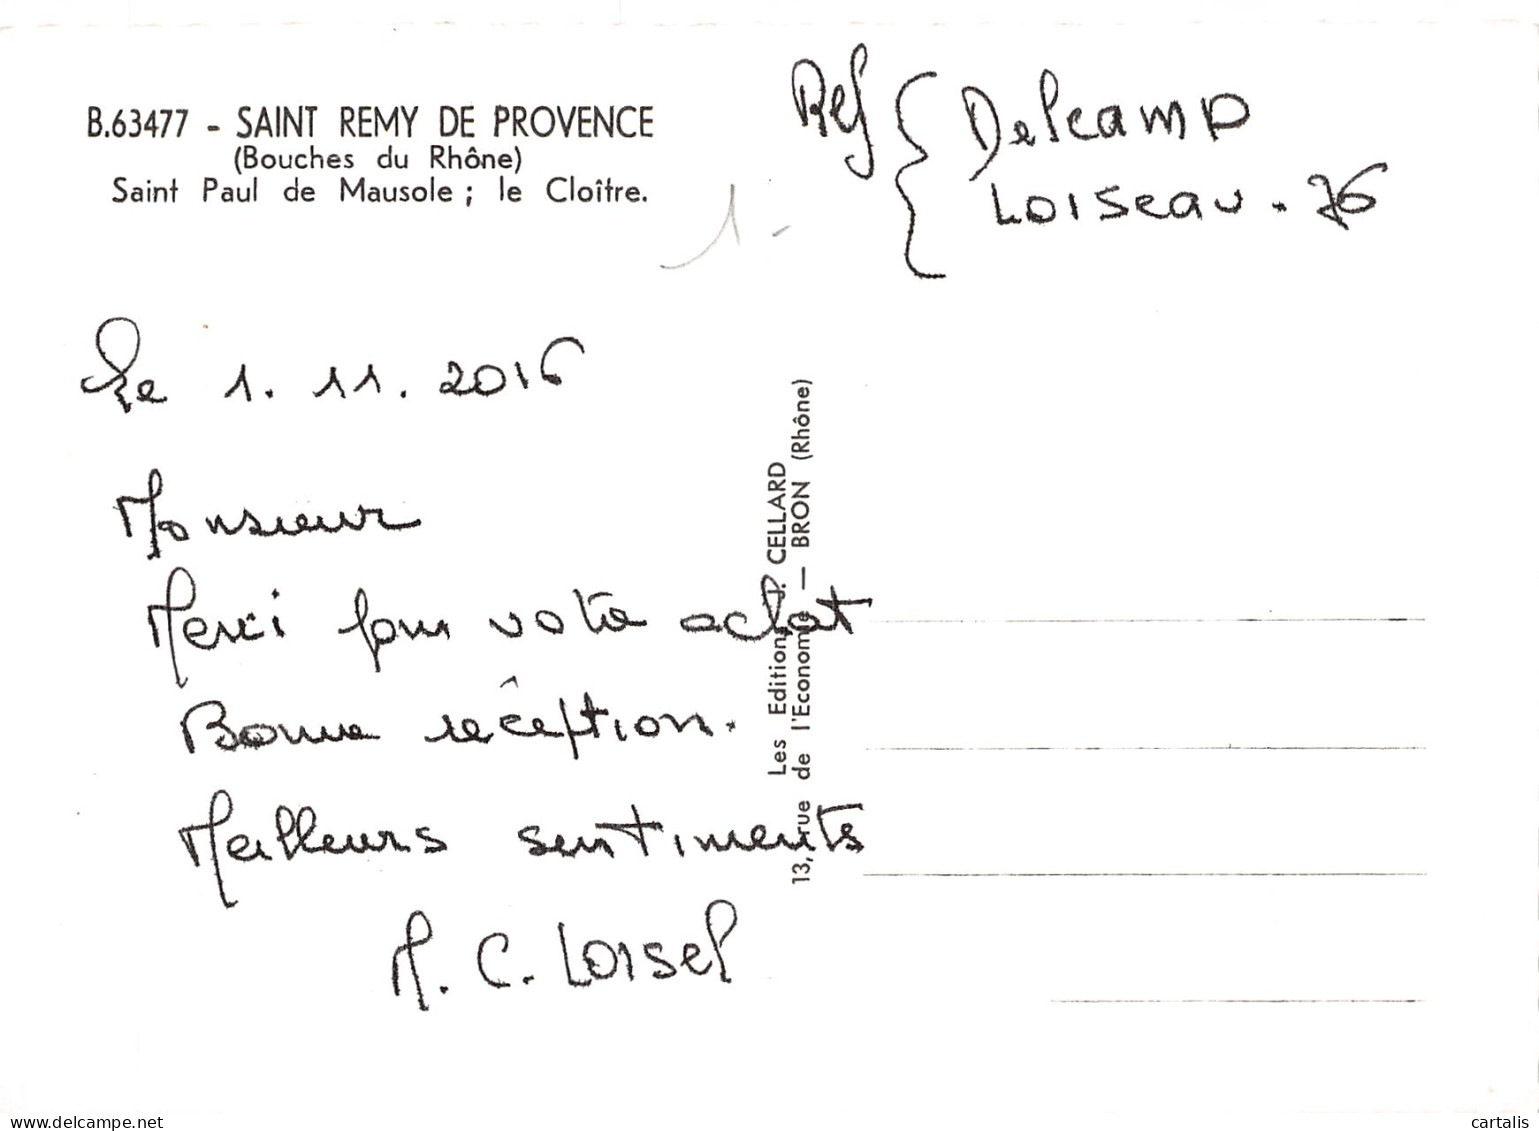 B.63477 - SAINT REMY DE PROVENCE
(Bouches du Rhône)
Saint Paul de Mausole ; le Cloître.
Ref { Delcamp
Loiseau . 76
1. -
Le 1. 11. 2016
Monsieur
Merci pour votre achat
Bonne réception.
Meilleurs sentiments
M. C. Loisel
Les Editions J. CELLARD
13, rue de l'Economie — BRON (Rhône)
delcampe.net
cartalis